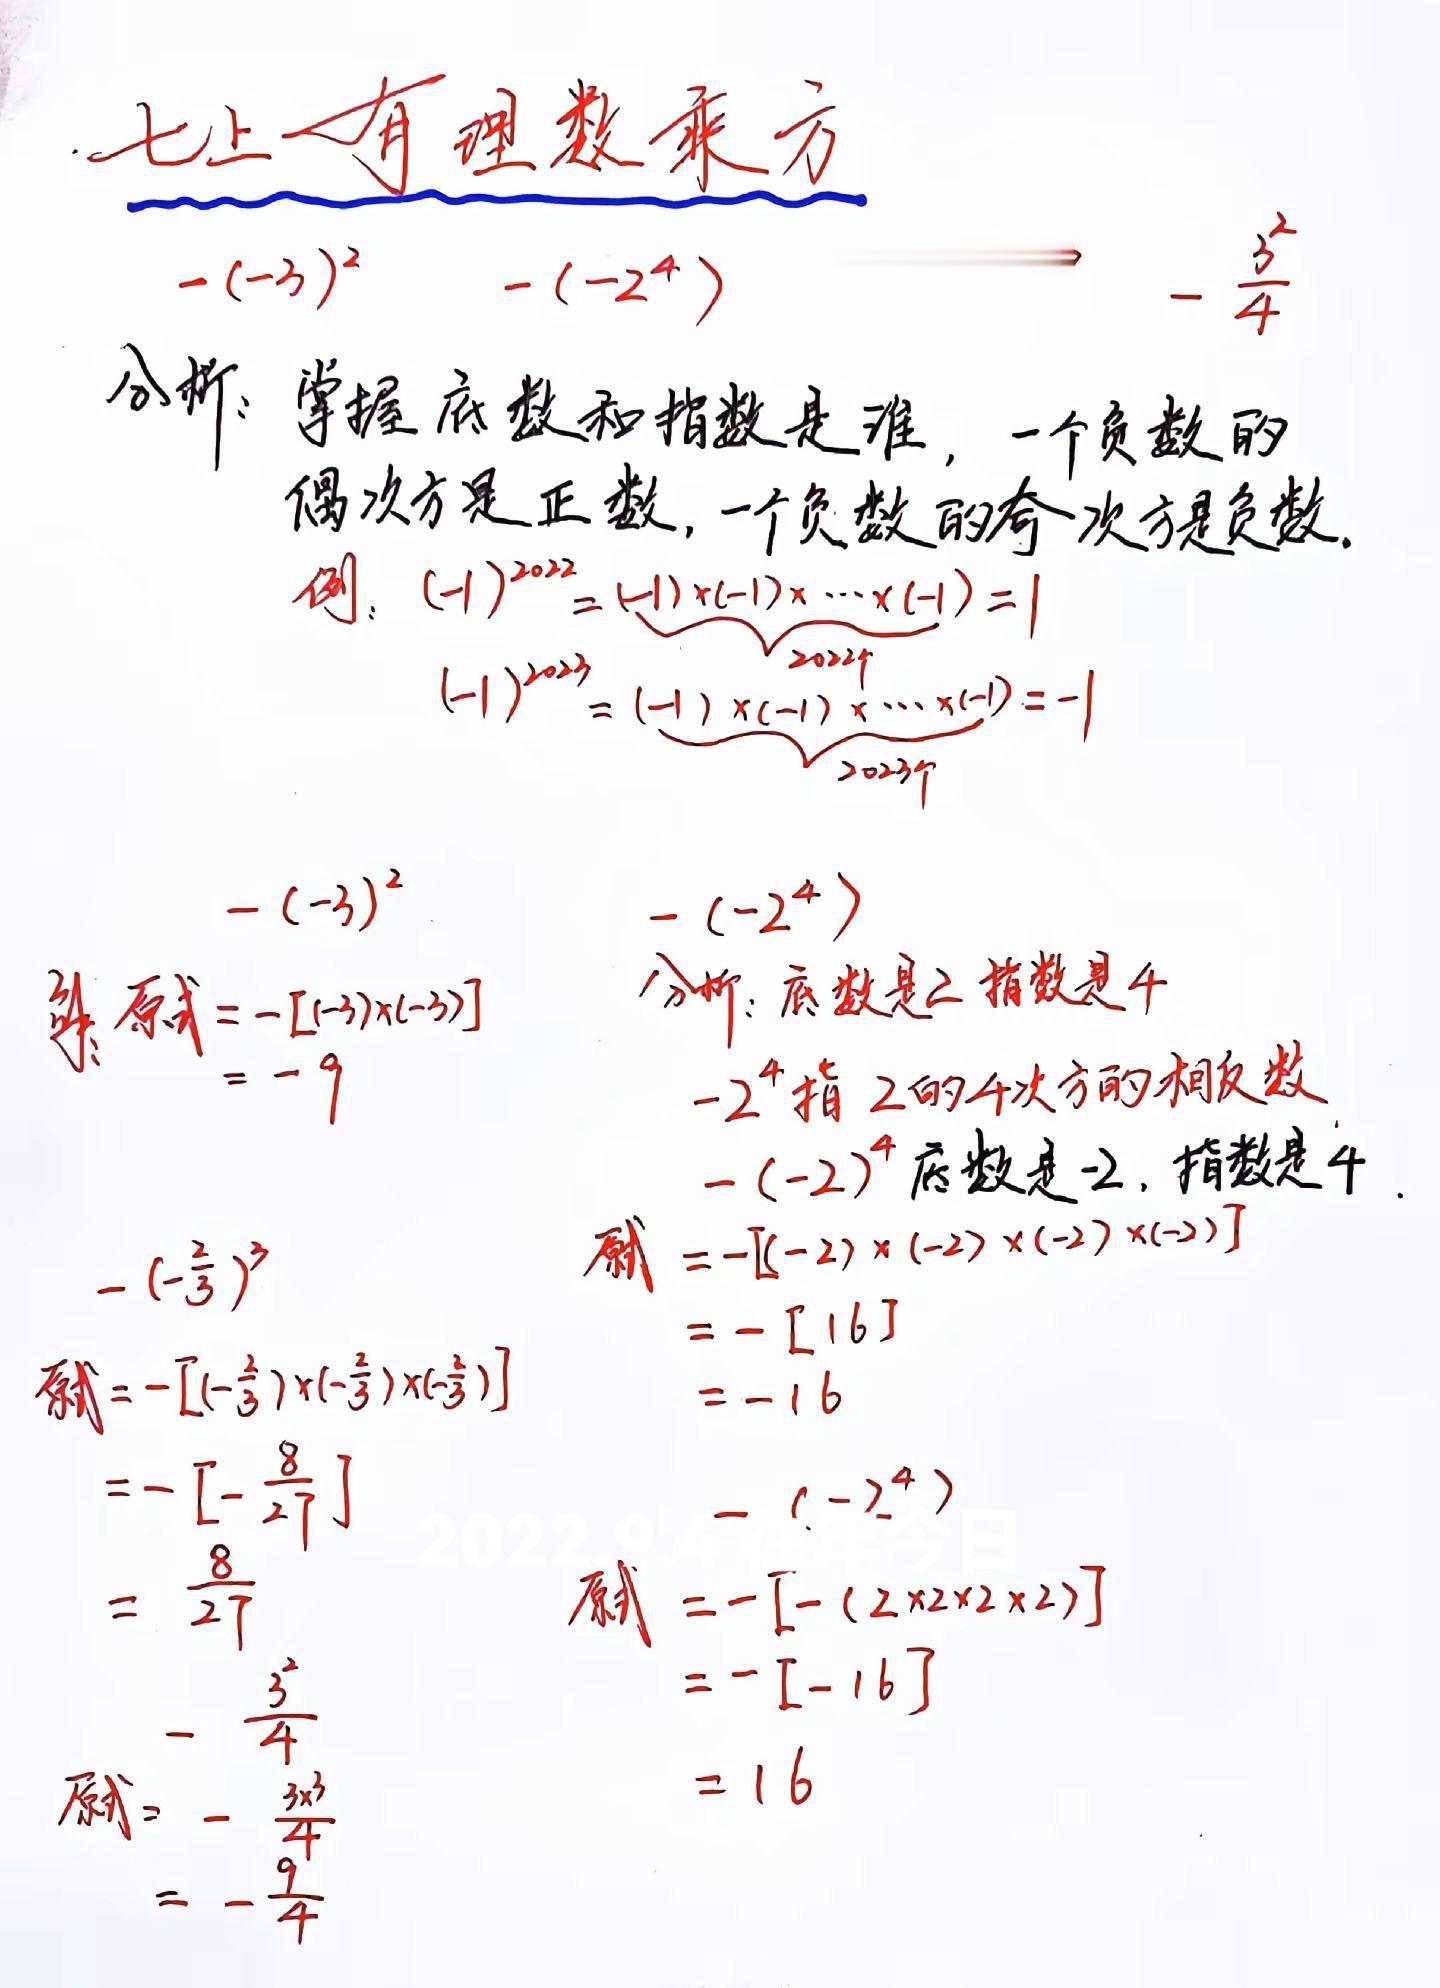 七上一有理数乘方
-(-3)² -(-2⁴) - 3²/4
分析：掌握底数和指数是谁，一个负数的
偶次方是正数，一个负数的奇次方是负数．
例：(-1)²⁰²² = (-1)×(-1)×…×(-1) = 1
2022个
(-1)²⁰²³ = (-1)×(-1)×…×(-1) = -1
2023个
-(-3)²
解：原式 = -[(-3)×(-3)]
= -9
-(-2⁴)
分析：底数是2 指数是4
-2⁴指2的4次方的相反数
-(-2)⁴底数是-2．指数是4．
原式 = -[(-2)×(-2)×(-2)×(-2)]
= -[16]
= -16
-(-2/3)³
原式 = -[(-2/3)×(-2/3)×(-2/3)]
= -[-8/27]
= 8/27
-(-2⁴)
原式 = -[-(2×2×2×2)]
= -[-16]
= 16
- 3²/4
原式 = - 3×3/4
= - 9/4
2022.9.4 往年今日